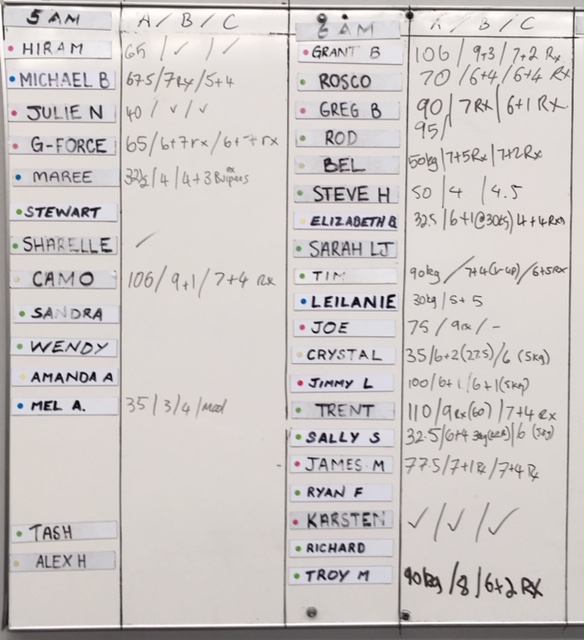 5 AM A / B / C
HIRAM 65 / ✓ / ✓
MICHAEL B 67.5/7Rx/5+4
JULIE N 40 / ✓ / ✓
G-FORCE 65/6+7rx/6+7rx
MAREE 32½/4/4+3 Burpees
STEWART
SHARELLE ✓
CAMO 106/9+1/7+4 Rx
SANDRA
WENDY
AMANDA A
MEL A. 35/3/4/mod
TASH
ALEX H
6 AM A / B / C
GRANT B 106/9+3/7+2 Rx
ROSCO 70/6+4/6+4 Rx
GREG B 90/7Rx/6+1 Rx
ROD 95/
BEL 50kg/7+5Rx/7+2Rx
STEVE H 50/4/4.5
ELIZABETH B 32.5/6+1(@30kg)/4+4Rx
SARAH LJ
TIM 90kg/7+4/6+5Rx
LEILANIE 30kg/5+5
JOE 75/9rx/-
CRYSTAL 35/6+2(27.5)/6 (5kg)
JIMMY L 100/6+1/6+1(5kg)
TRENT 110/9Rx(60)/7+4 Rx
SALLY S 32.5/6+4/6 (5kg)
JAMES M 77.5/7+1Rx/7+4 Rx
RYAN F
KARSTEN ✓/✓/✓
RICHARD
TROY M 90kg/8/6+2 RX